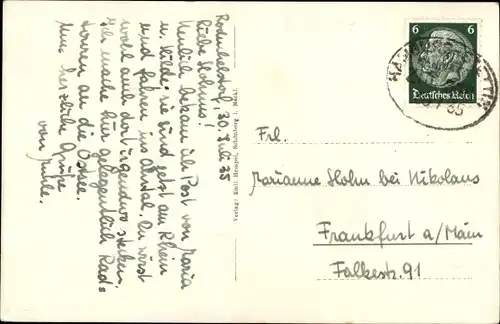 Rodenhelsdorf, 30. Juli 35
Liebe Hohnus!
Neulich bekam ich Post von Maria
u. Hilde; sie sind jetzt am Rhein
und fahren ins Ahrtal. Du wirst
wohl auch dort irgendwo stecken.
Ich mache hier gelegentlich Rad-
touren an die Ostsee.
Nun herzliche Grüße
von
Verlag: Emil Hempel, Schönberg i. Meckl.
6 6
Deutsches Reich
Frl.
Marianne Hohn bei Nikolaus
Frankfurt a/Main
Falkestr. 91